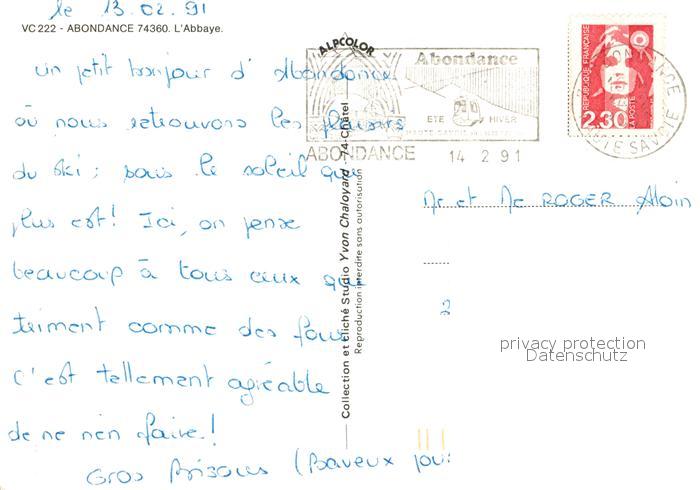 le 13.02.91
VC 222 - ABONDANCE 74360. L'Abbaye.
un petit bonjour d'Abondance
où nous retrouvons les plaisirs
du ski : sous le soleil qui
plus est! Ici, on pense
beaucoup à tous ceux qui
triment comme des fous
C'est tellement agréable
de ne rien faire!
Gros Bisous (Baveux pour
ALPCOLOR
Collection et cliché Studio Yvon Chaloyard - 74-Châtel
Reproduction interdite sans autorisation
Abondance
ETE HIVER
ABONDANCE
14 2 91
REPUBLIQUE FRANÇAISE
2,30
LA POSTE
HAUTE SAVOIE
Mr et Me ROGER Alain
2
privacy protection
Datenschutz